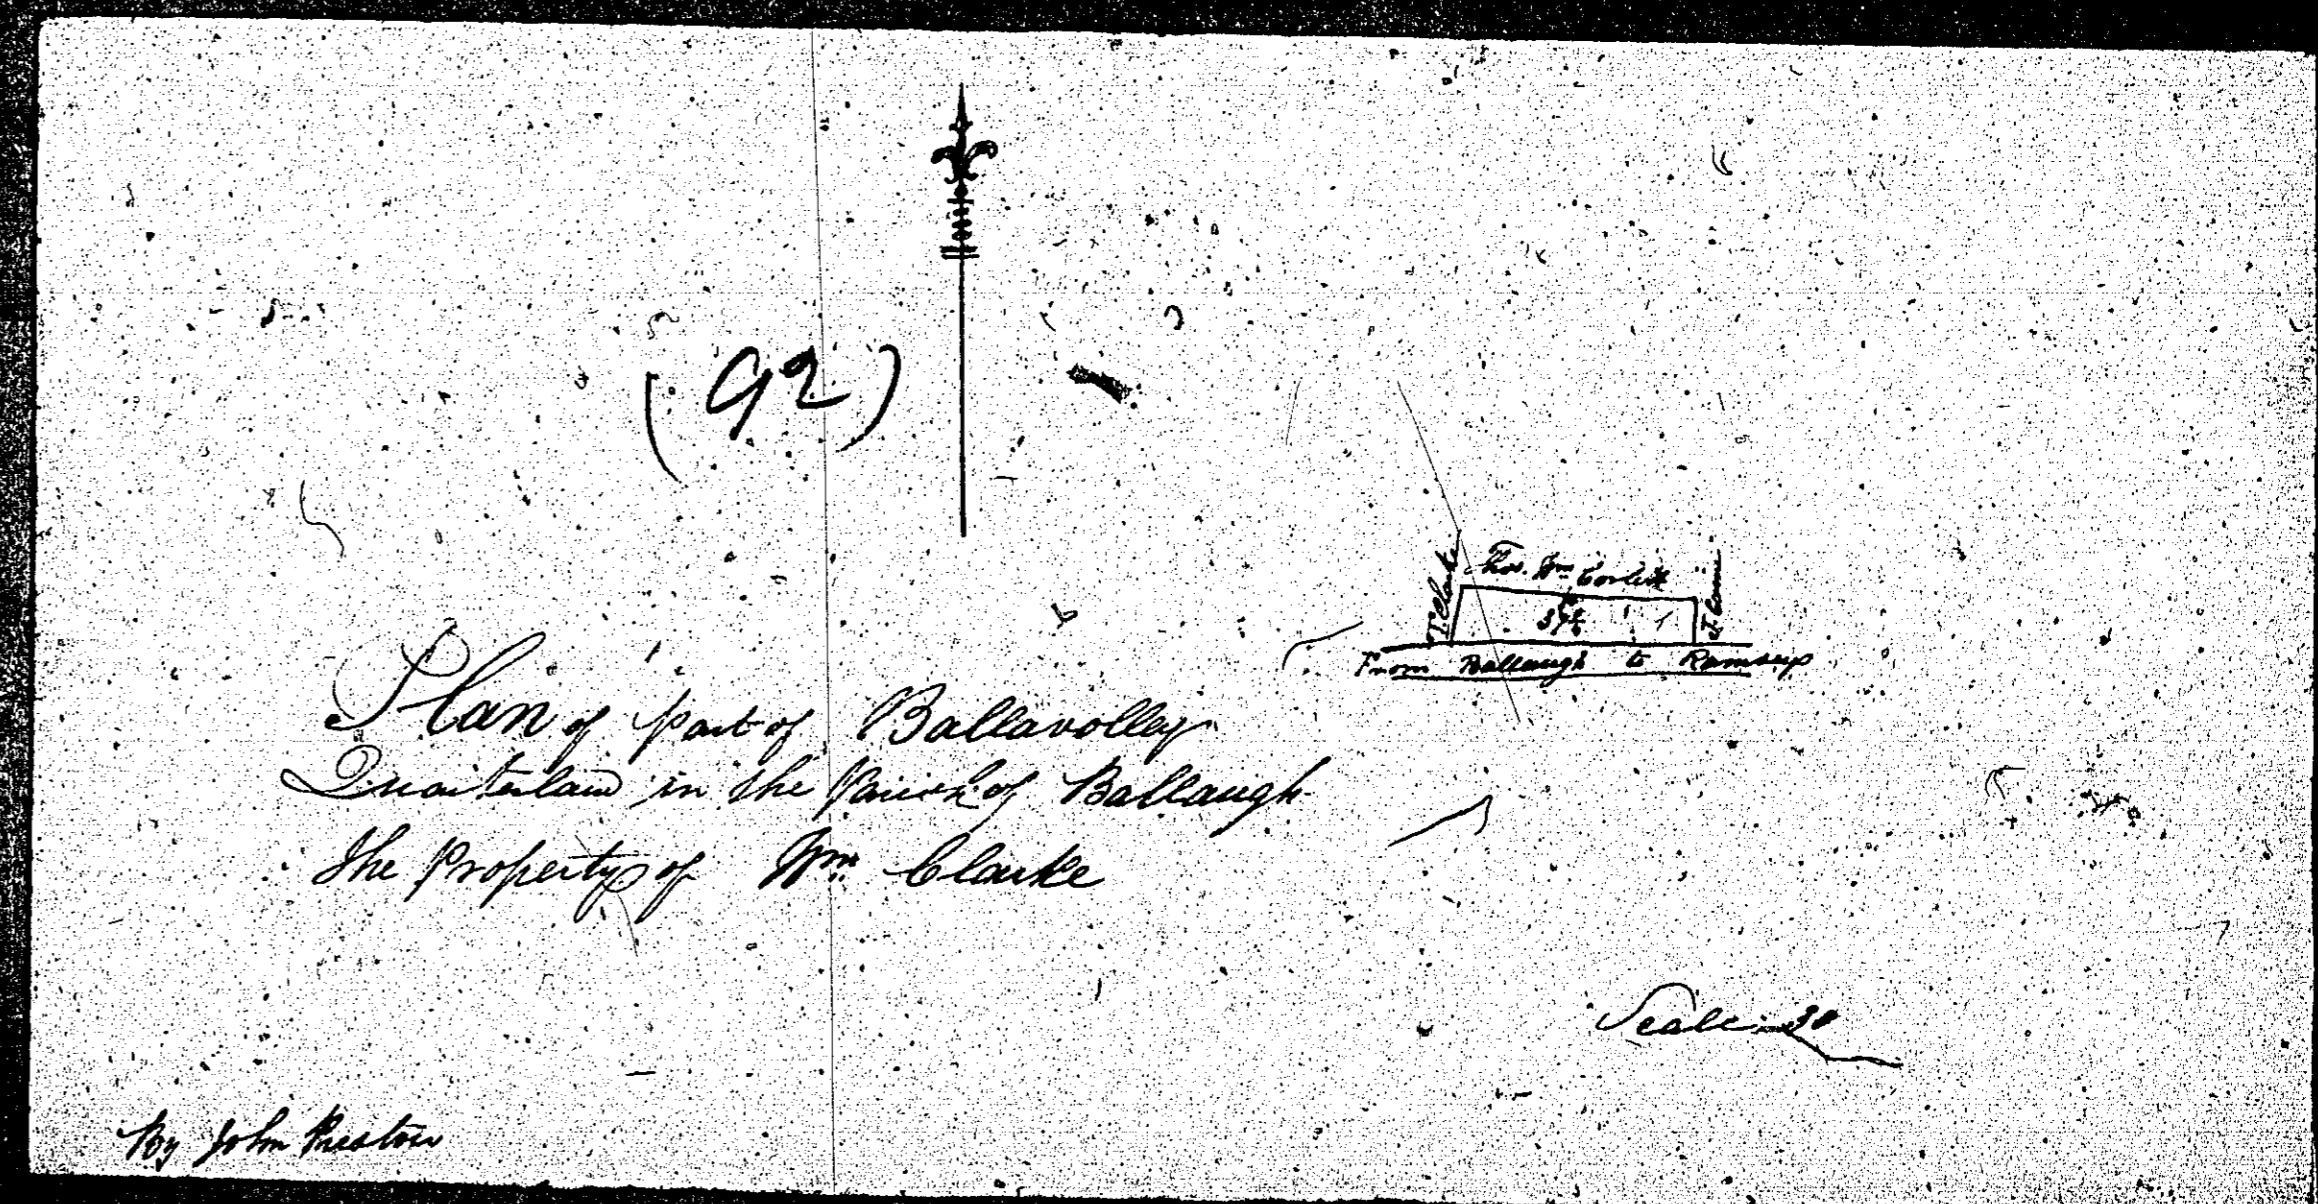 (92)
T. Clarke
Thos. Wm Corlett
From Ballaugh to Ramsey
Plan of part of Ballavolley
Quarterland in the Parish of Ballaugh
The Property of Wm Clarke
Scale 30
By John Preston